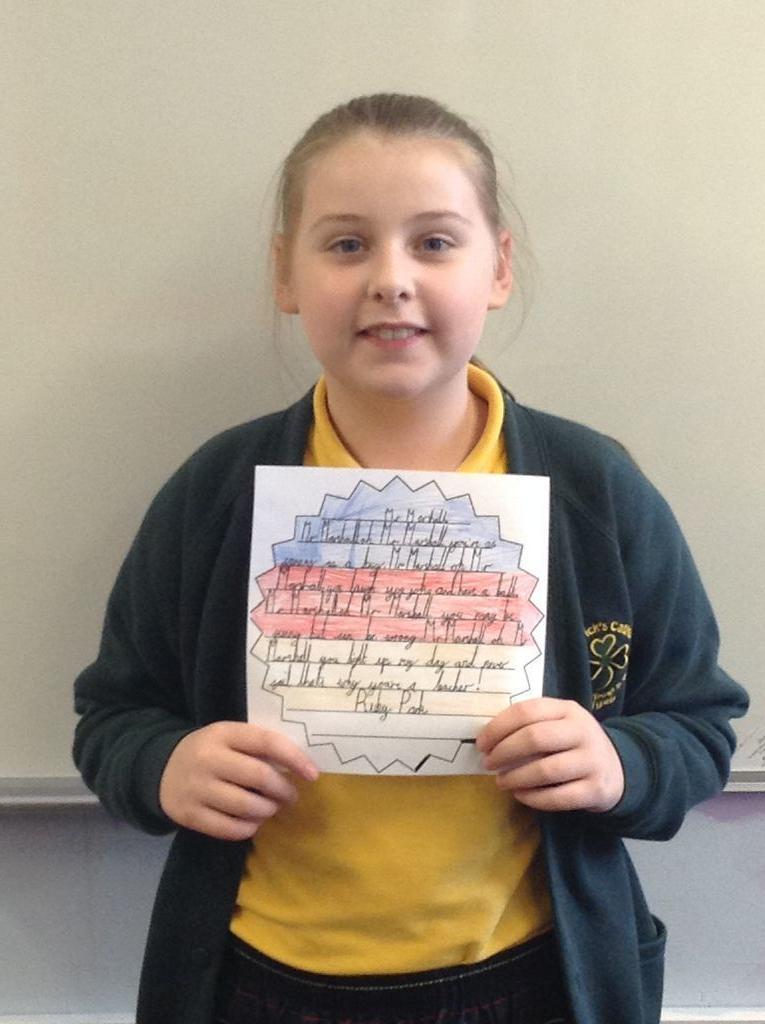 Mr Marshall
Mr Marshall oh Mr Marshall you're as
as a bug. Mr Marshall oh Mr
Marshall you laugh you joke and have a
Mr Marshall oh Mr Marshall you may be
but can be wrong Mr Marshall oh Mr
Marshall you light up my day and never
fail that's why you're a teacher!
Ruby Park